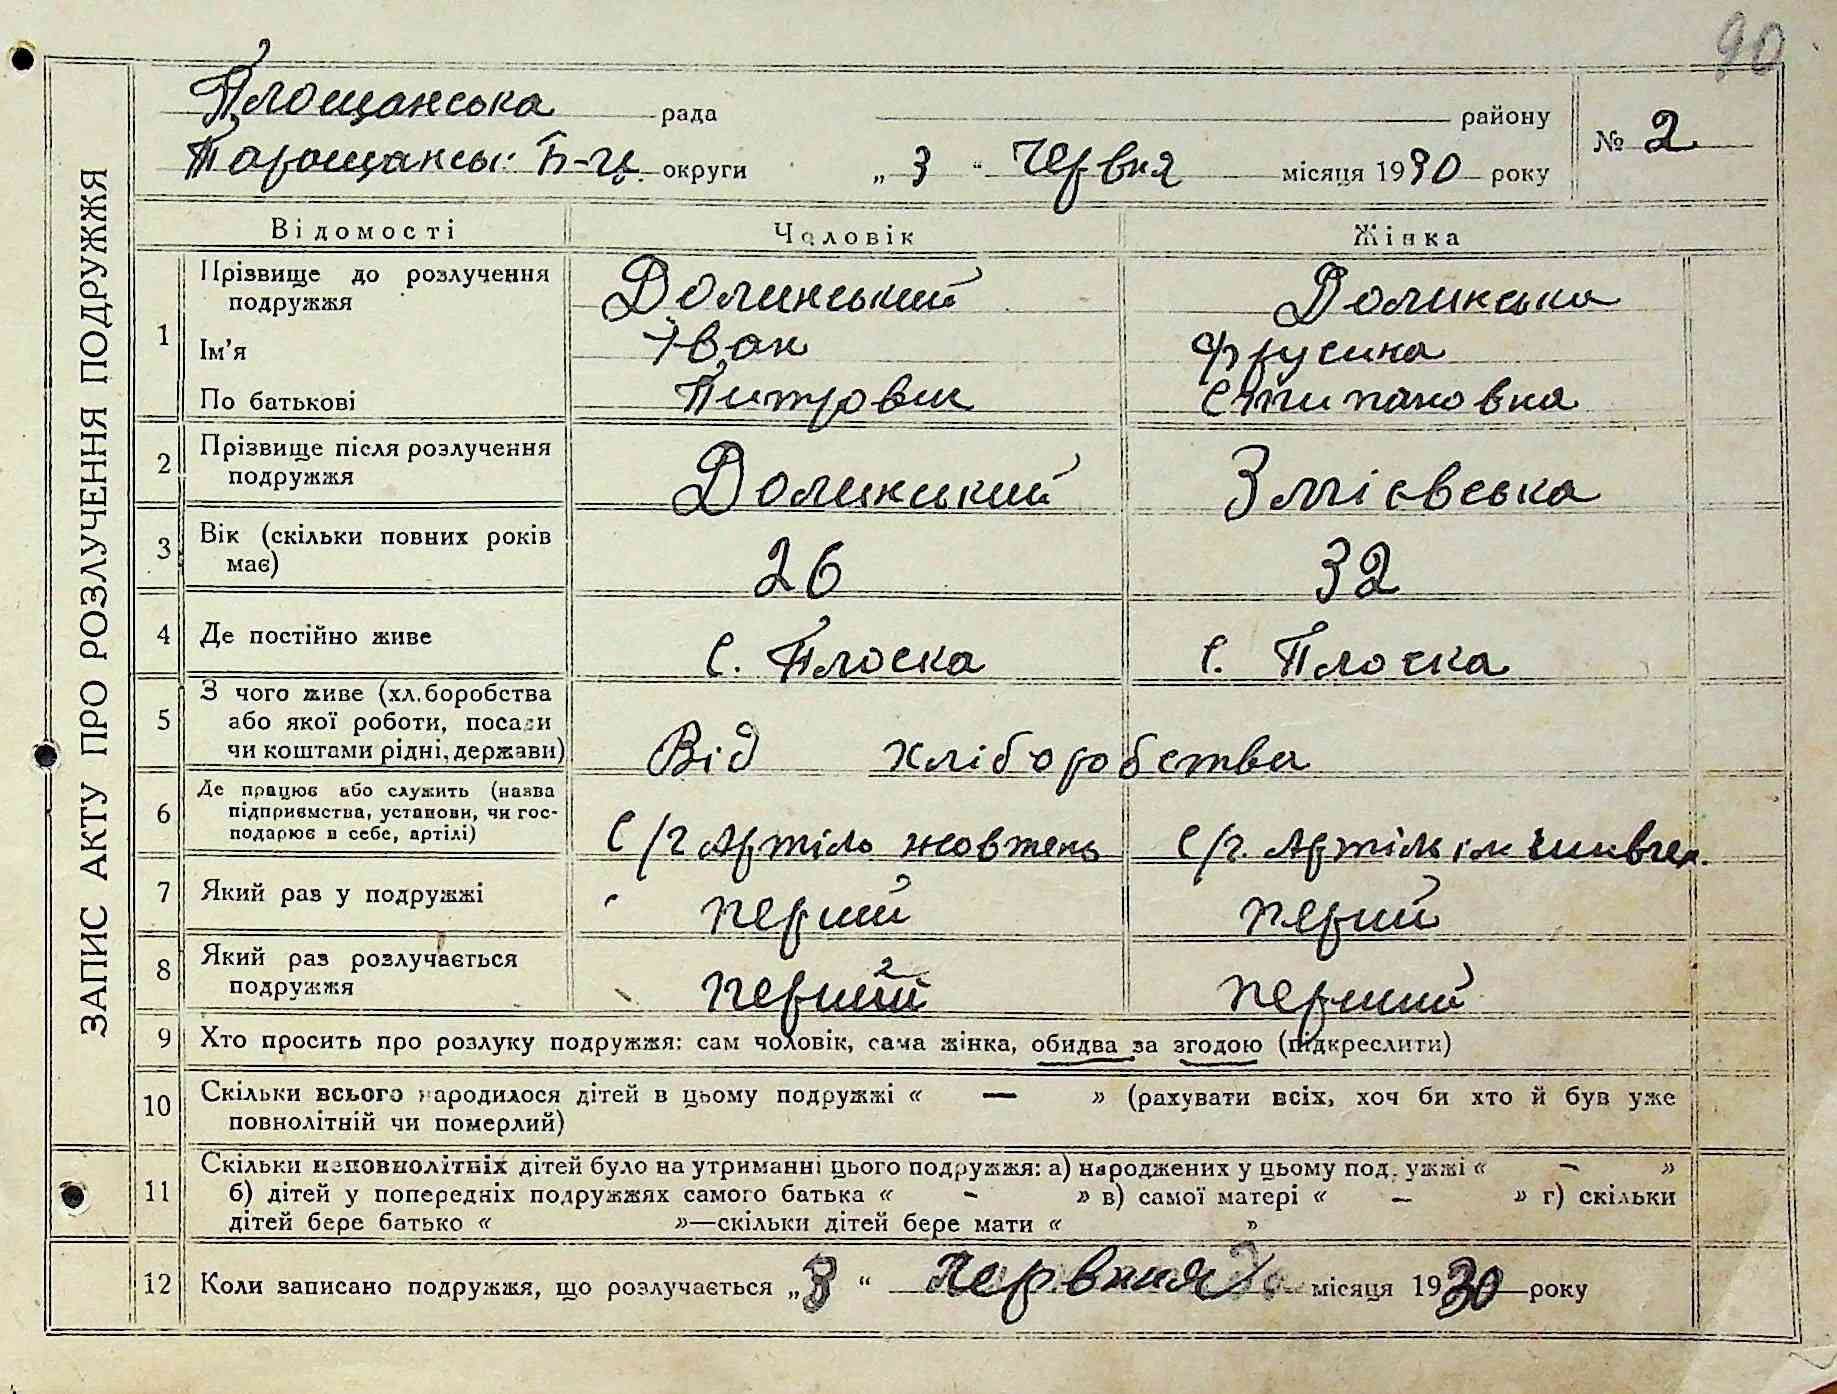 90
Площанська рада району № 2
Тарощанськ: Б-Ц. округи „ 3 “ Червня місяця 1930 року
ЗАПИС АКТУ ПРО РОЗЛУЧЕННЯ ПОДРУЖЖЯ
Відомості Чоловік Жінка
1 Прізвище до розлучення подружжя Долинський Долинська
Ім'я Іван Фрусина
По батькові Питрович Стипановна
2 Прізвище після розлучення подружжя Долинський Змієвська
3 Вік (скільки повних років має) 26 32
4 Де постійно живе С. Плоска С. Плоска
5 З чого живе (хл.боробства
або якої роботи, посади
чи коштами рідні, держави) Від хліборобства
6 Де працює або служить (назва
підприємства, установи, чи гос-
подарює в себе, артілі) С/г Артіль жовтень С/г. Артіль ім
7 Який раз у подружжі перший перший
8 Який раз розлучається
подружжя перший перший
9 Хто просить про розлуку подружжя: сам чоловік, сама жінка, обидва за згодою (підкреслити)
10 Скільки всього народилося дітей в цьому подружжі « — » (рахувати всіх, хоч би хто й був уже
повнолітній чи померлий)
11 Скільки неповнолітніх дітей було на утриманні цього подружжя: а) народжених у цьому подружжі « - »
б) дітей у попередніх подружжях самого батька « - » в) самої матері « — » г) скільки
дітей бере батько « »—скільки дітей бере мати « »
12 Коли записано подружжя, що розлучається „ 3 “ червня місяця 1930 року